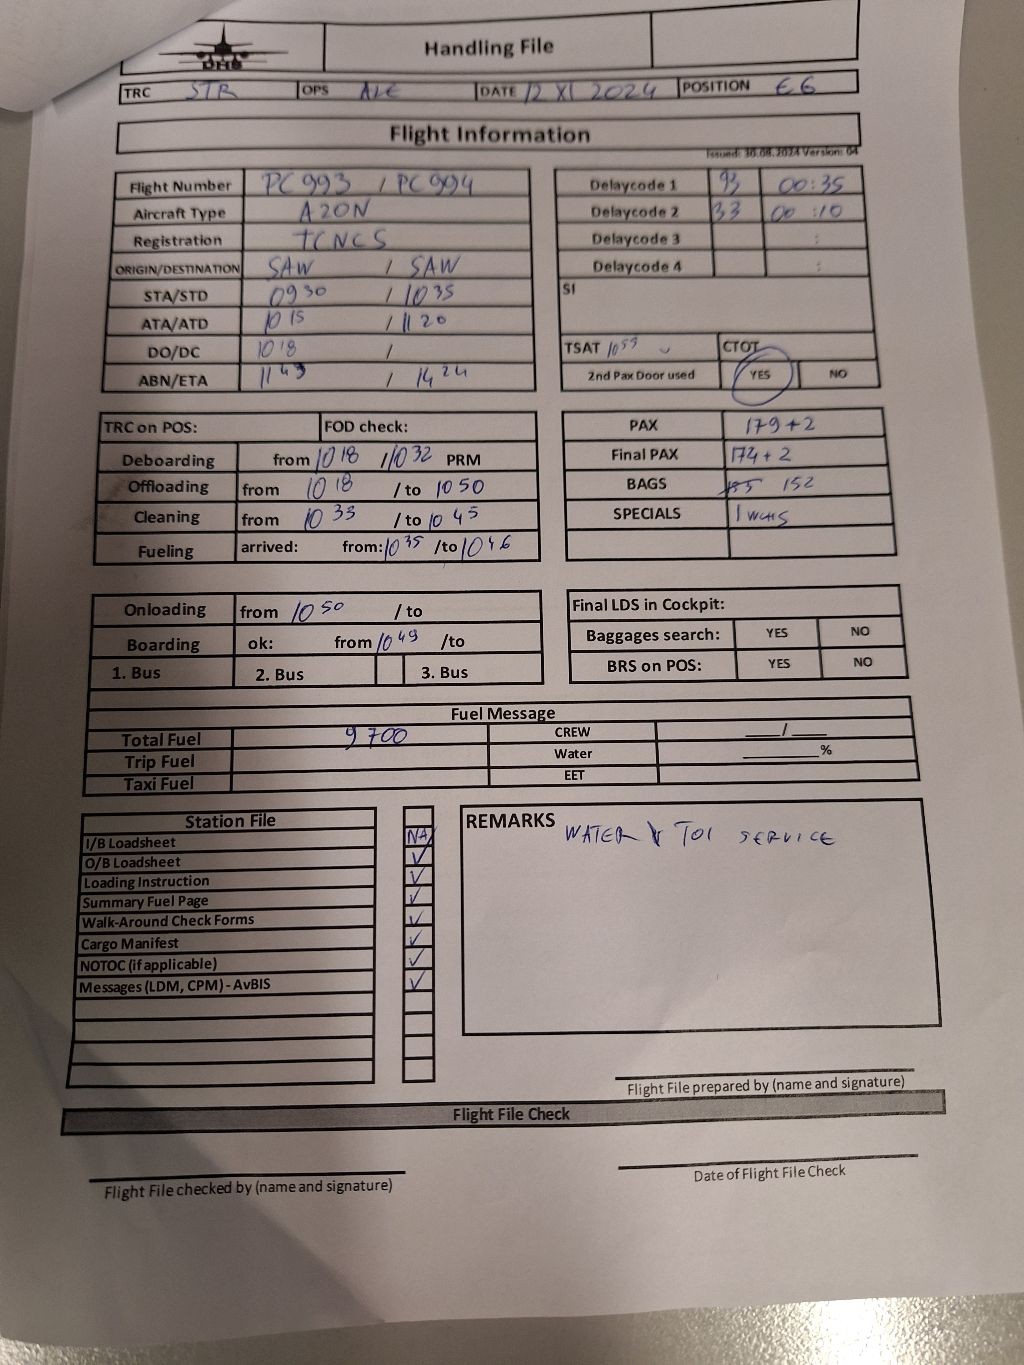 DHS
Handling File
TRC STR OPS ALE DATE 12 XI 2024 POSITION E6
Flight Information
Issued: 30.08.2024 Version: 04
Flight Number PC 993 / PC 994
Aircraft Type A20N
Registration TCNCS
ORIGIN/DESTINATION SAW / SAW
STA/STD 0930 / 1035
ATA/ATD 1015 / 1120
DO/DC 1018 /
ABN/ETA 1143 / 1424
Delaycode 1 93 00:35
Delaycode 2 33 00:10
Delaycode 3 :
Delaycode 4 :
SI
TSAT CTOT
2nd Pax Door used YES NO
TRC on POS: FOD check:
Deboarding from 1018 / 1032 PRM
Offloading from 1018 / to 1050
Cleaning from 1033 / to 1045
Fueling arrived: from: 1035 /to 1046
PAX 179+2
Final PAX 174+2
BAGS 155 152
SPECIALS 1 WCHS
Onloading from 1050 / to
Boarding ok: from 1049 /to
1. Bus 2. Bus 3. Bus
Final LDS in Cockpit:
Baggages search: YES NO
BRS on POS: YES NO
Fuel Message
Total Fuel 9700 CREW ___/___
Trip Fuel Water ______%
Taxi Fuel EET
Station File
I/B Loadsheet NA
O/B Loadsheet ✓
Loading Instruction ✓
Summary Fuel Page ✓
Walk-Around Check Forms ✓
Cargo Manifest ✓
NOTOC (if applicable) ✓
Messages (LDM, CPM) - AvBIS ✓
REMARKS WATER TOI SERVICE
Flight File prepared by (name and signature)
Flight File Check
Flight File checked by (name and signature)
Date of Flight File Check